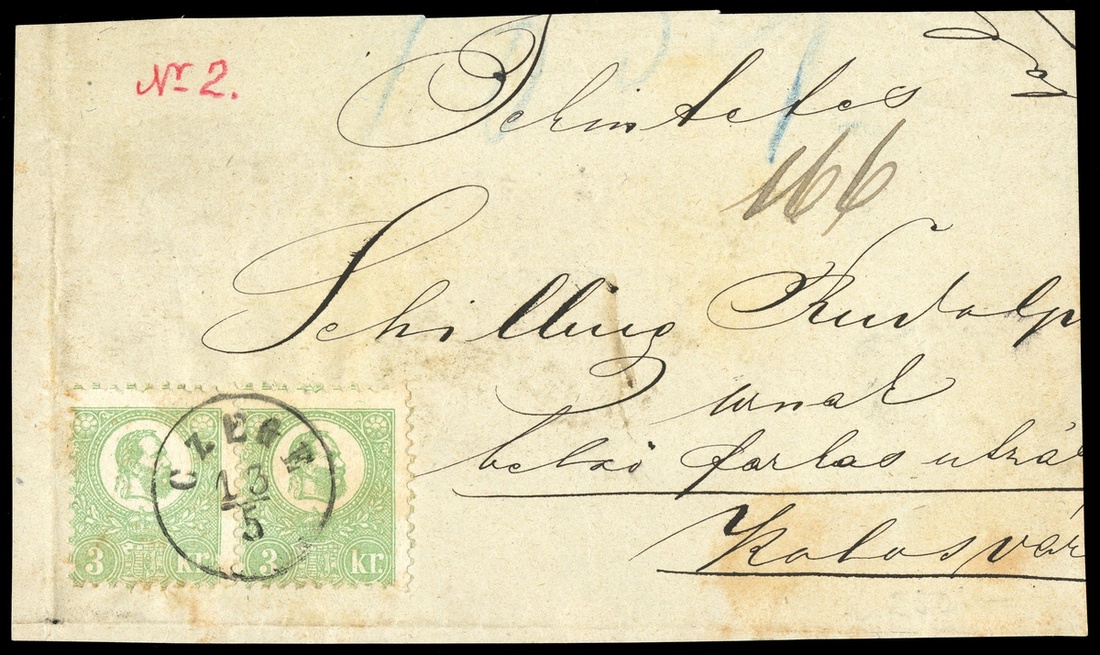 Nr 2.
Tekintetes
166
Schilling Rudolp
urnak
belső farkas utzá
Kolosvár
CZEGE
13
5
3 kr. 3 kr.